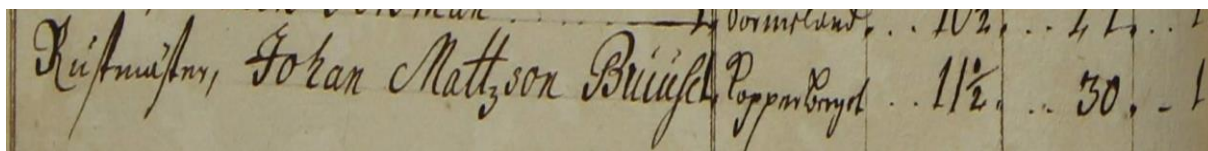 Wermeland. . . 10½. . .
Rustmäster, Johan Mattzson Kopperberget . . 11½. . . 30. . 1